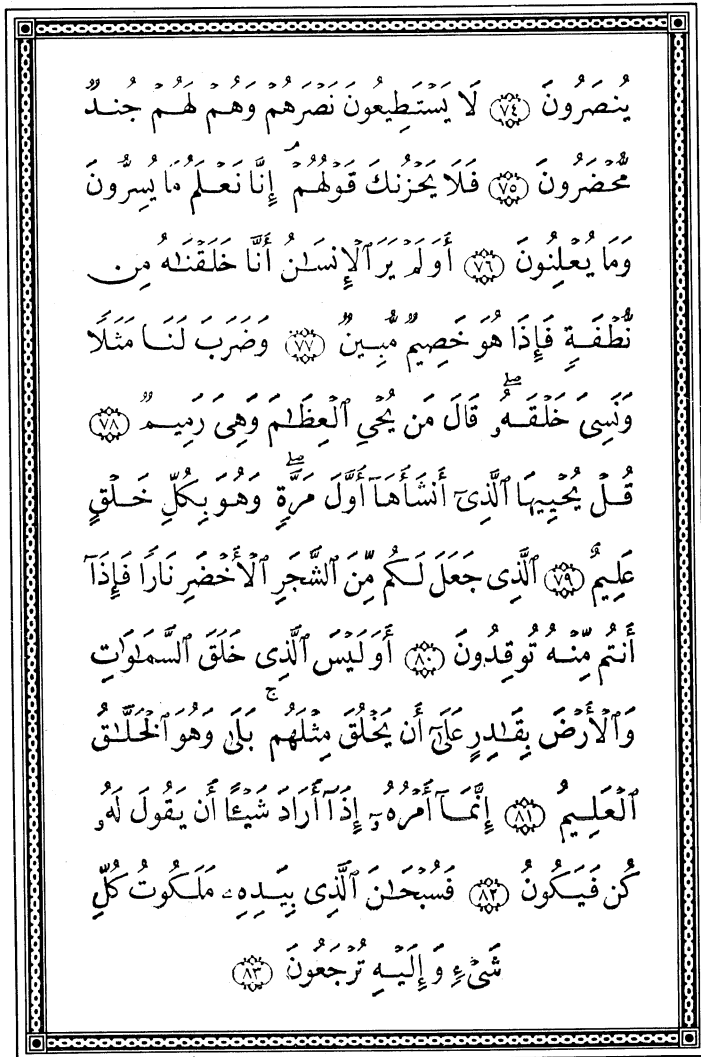 يُنصَرُونَ ﴿٧٤﴾ لَا يَسْتَطِيعُونَ نَصْرَهُمْ وَهُمْ لَهُمْ جُندٌ
مُّحْضَرُونَ ﴿٧٥﴾ فَلَا يَحْزُنكَ قَوْلُهُمْ ۘ إِنَّا نَعْلَمُ مَا يُسِرُّونَ
وَمَا يُعْلِنُونَ ﴿٧٦﴾ أَوَلَمْ يَرَ ٱلْإِنسَـٰنُ أَنَّا خَلَقْنَـٰهُ مِن
نُّطْفَةٍ فَإِذَا هُوَ خَصِيمٌ مُّبِينٌ ﴿٧٧﴾ وَضَرَبَ لَنَا مَثَلًا
وَنَسِىَ خَلْقَهُۥ ۖ قَالَ مَن يُحْىِ ٱلْعِظَـٰمَ وَهِىَ رَمِيمٌ ﴿٧٨﴾
قُلْ يُحْيِيهَا ٱلَّذِىٓ أَنشَأَهَآ أَوَّلَ مَرَّةٍ ۖ وَهُوَ بِكُلِّ خَلْقٍ
عَلِيمٌ ﴿٧٩﴾ ٱلَّذِى جَعَلَ لَكُم مِّنَ ٱلشَّجَرِ ٱلْأَخْضَرِ نَارًا فَإِذَآ
أَنتُم مِّنْهُ تُوقِدُونَ ﴿٨٠﴾ أَوَلَيْسَ ٱلَّذِى خَلَقَ ٱلسَّمَـٰوَٰتِ
وَٱلْأَرْضَ بِقَـٰدِرٍ عَلَىٰٓ أَن يَخْلُقَ مِثْلَهُم ۚ بَلَىٰ وَهُوَ ٱلْخَلَّـٰقُ
ٱلْعَلِيمُ ﴿٨١﴾ إِنَّمَآ أَمْرُهُۥٓ إِذَآ أَرَادَ شَيْـًٔا أَن يَقُولَ لَهُۥ
كُن فَيَكُونُ ﴿٨٢﴾ فَسُبْحَـٰنَ ٱلَّذِى بِيَدِهِۦ مَلَكُوتُ كُلِّ
شَىْءٍ وَإِلَيْهِ تُرْجَعُونَ ﴿٨٣﴾